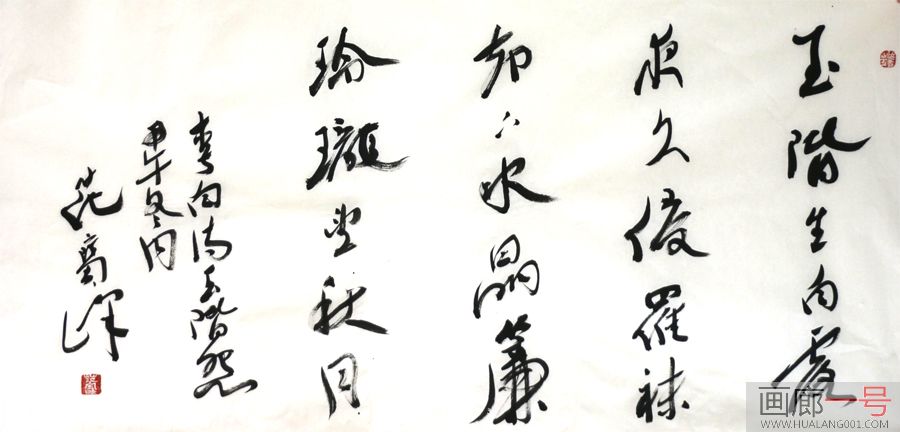 玉階生白露
夜久侵羅袜
却下水晶簾
玲瓏望秋月
李白詩玉階怨
甲午冬月
范
画廊一号
WWW.HUALANG001.COM